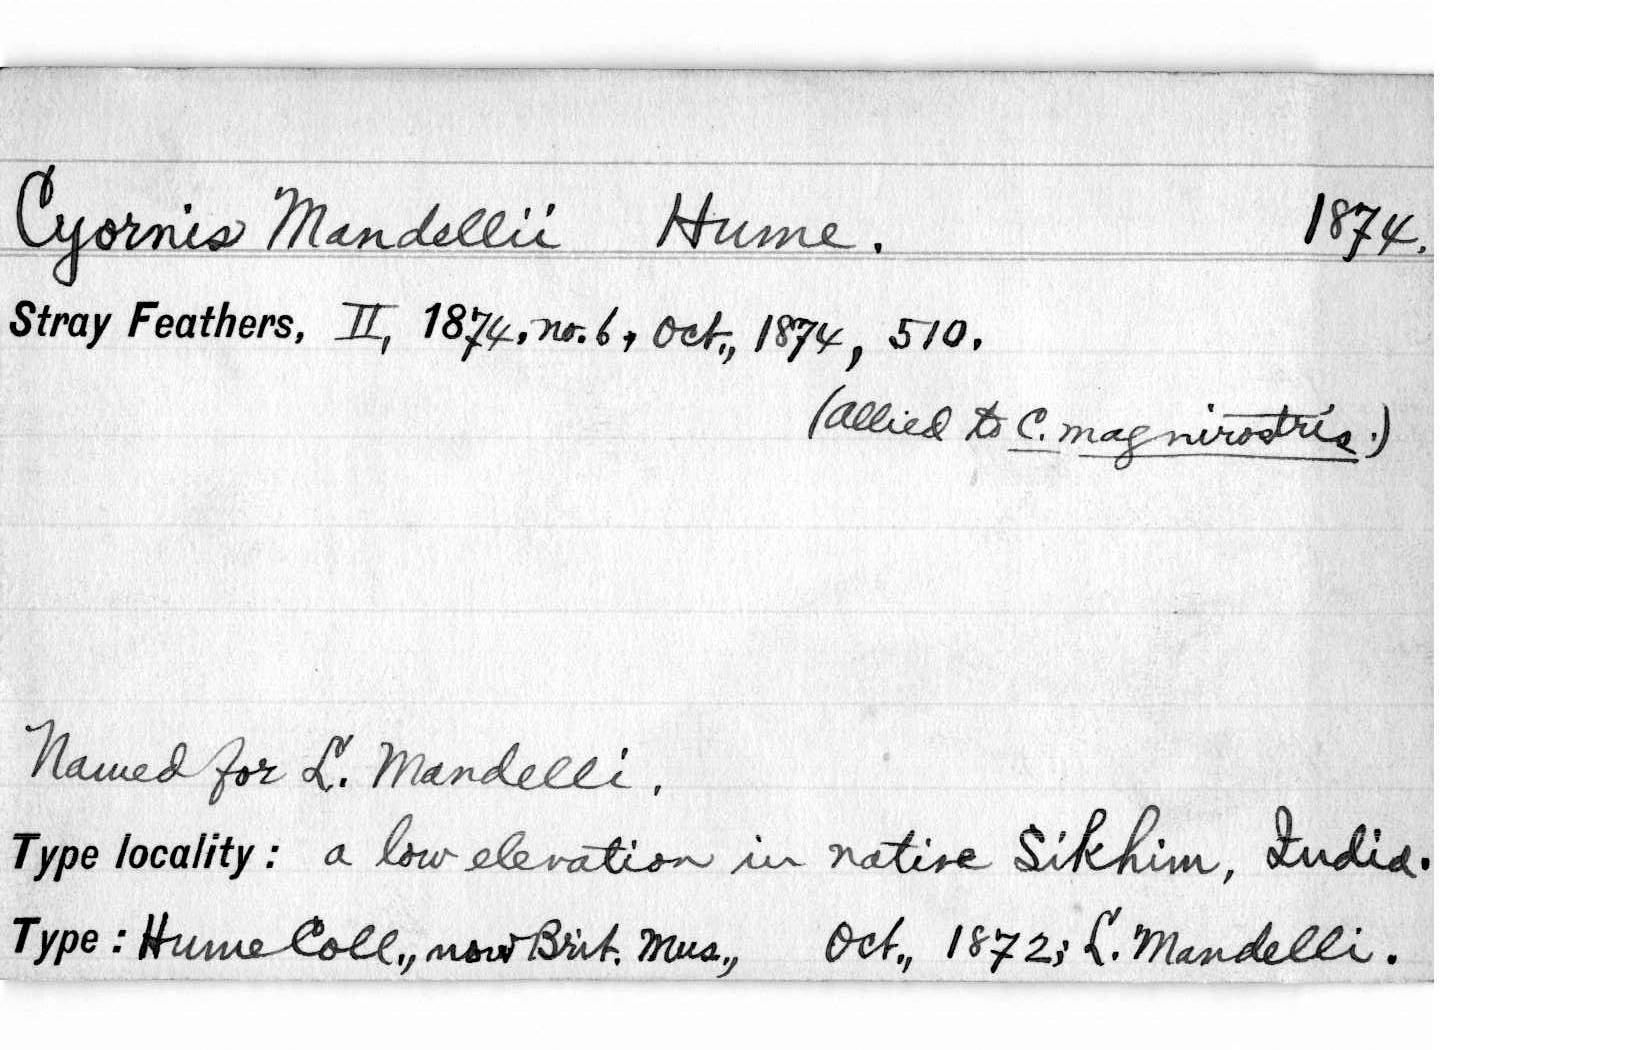 Cyornis Mandellii Hume. 1874.
Stray Feathers, II, 1874, no. 6, Oct., 1874, 510.
(allied to C. magnirostris.)
Named for L. Mandelli.
Type locality: a low elevation in native Sikhim, India.
Type: Hume Coll., now Brit. Mus., Oct., 1872; L. Mandelli.